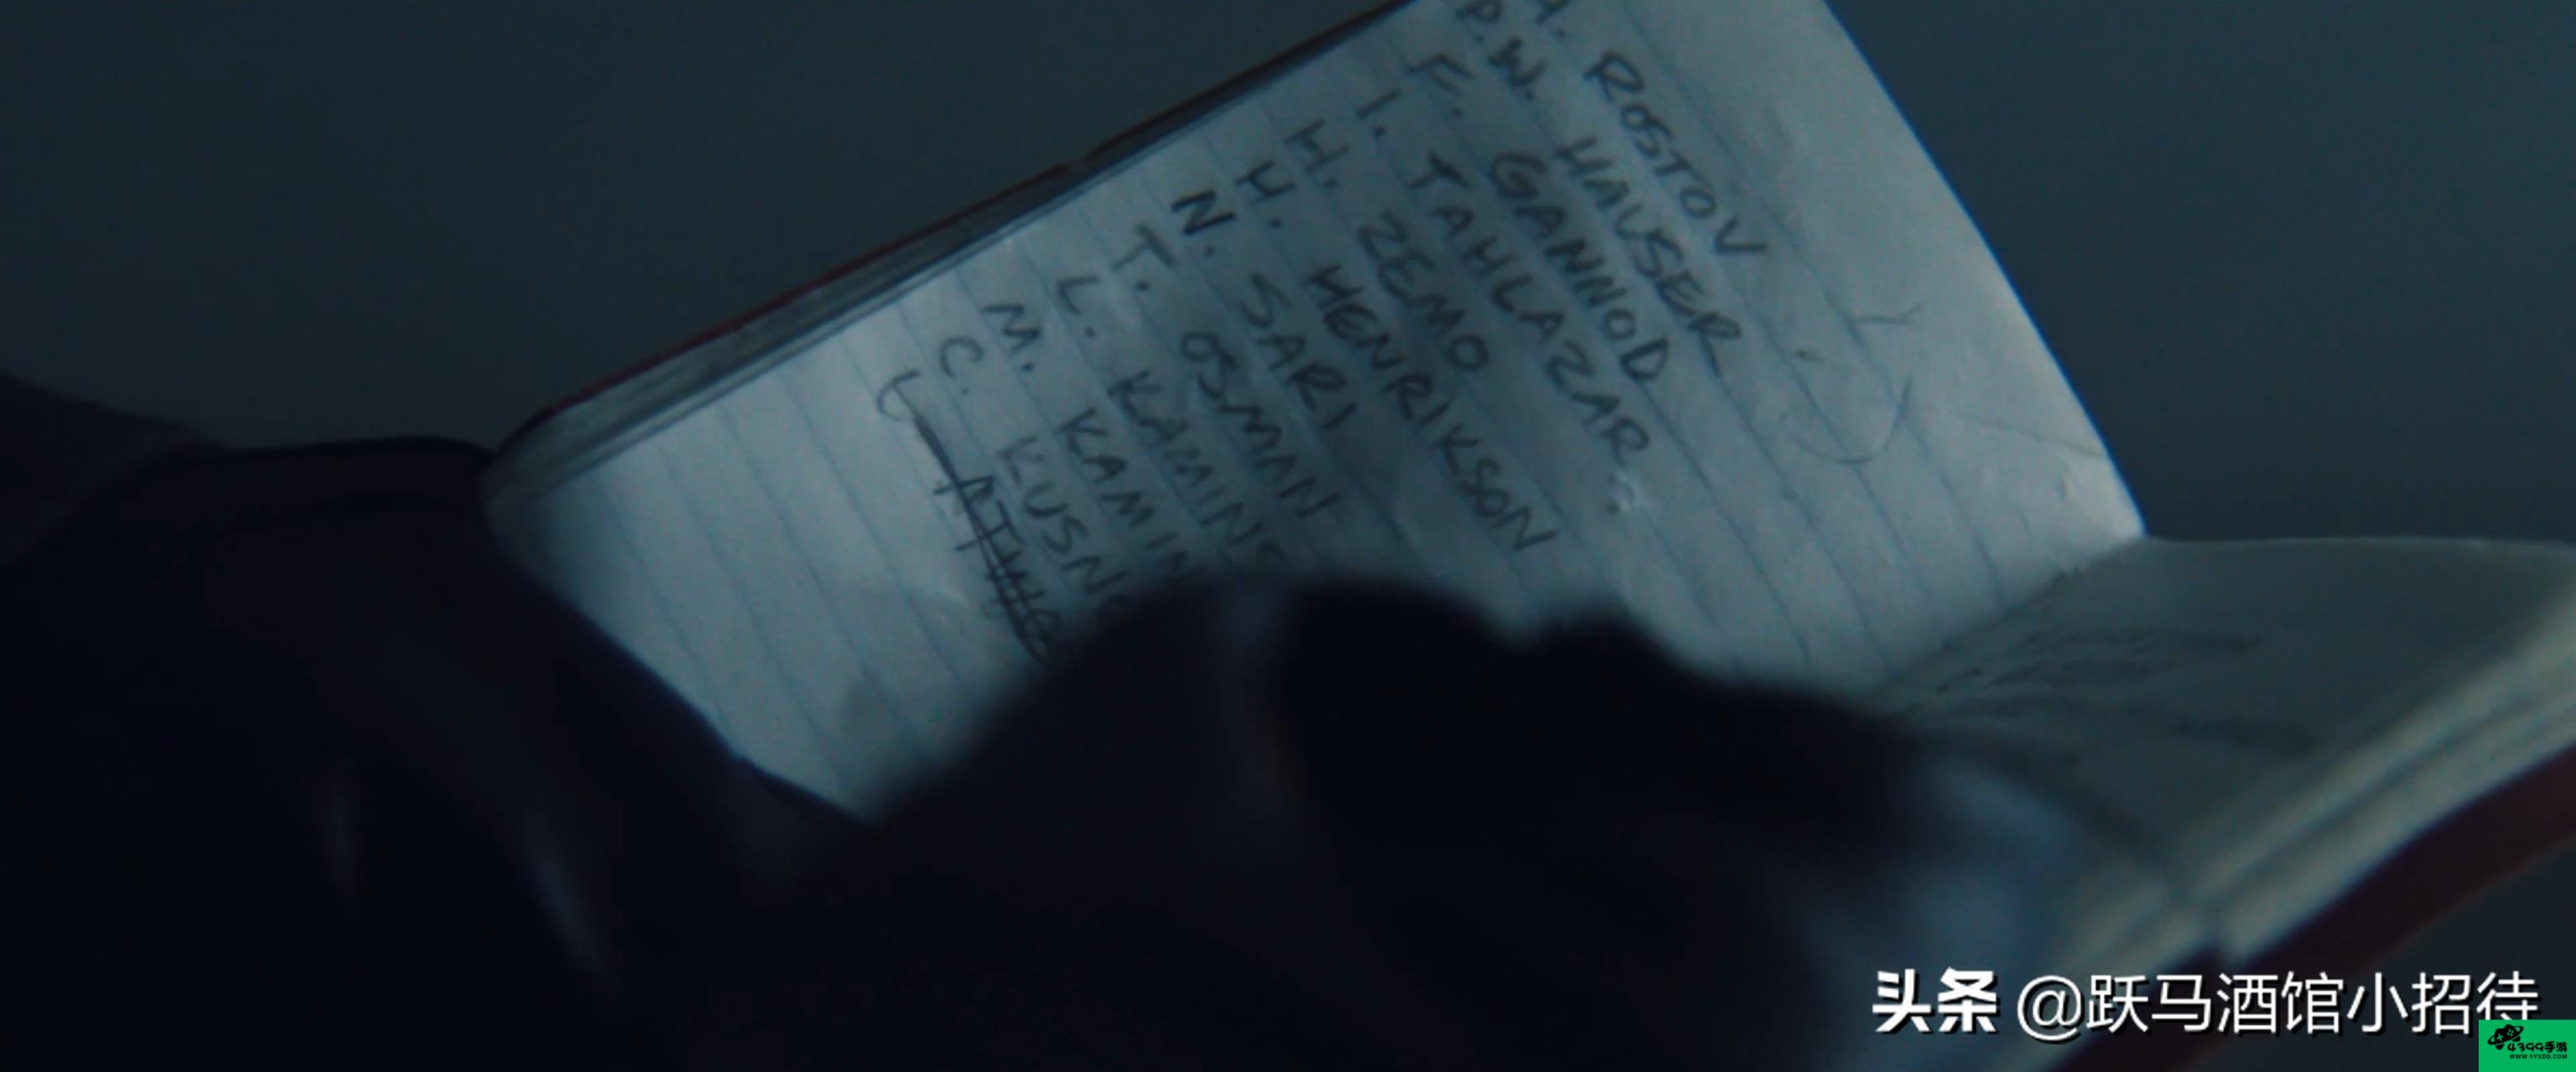 A. ROSTOV
P.W. HAUSER
F. GANNOD
I. TAHLAZAR
H. ZEMO
H. HENRIKSON
N. SARI
T. OSMAN
L. KAMINS
M. KAMIN
C. KUSN
L
头条 @跃马酒馆小招待
4399手游
WWW.YYXDD.COM